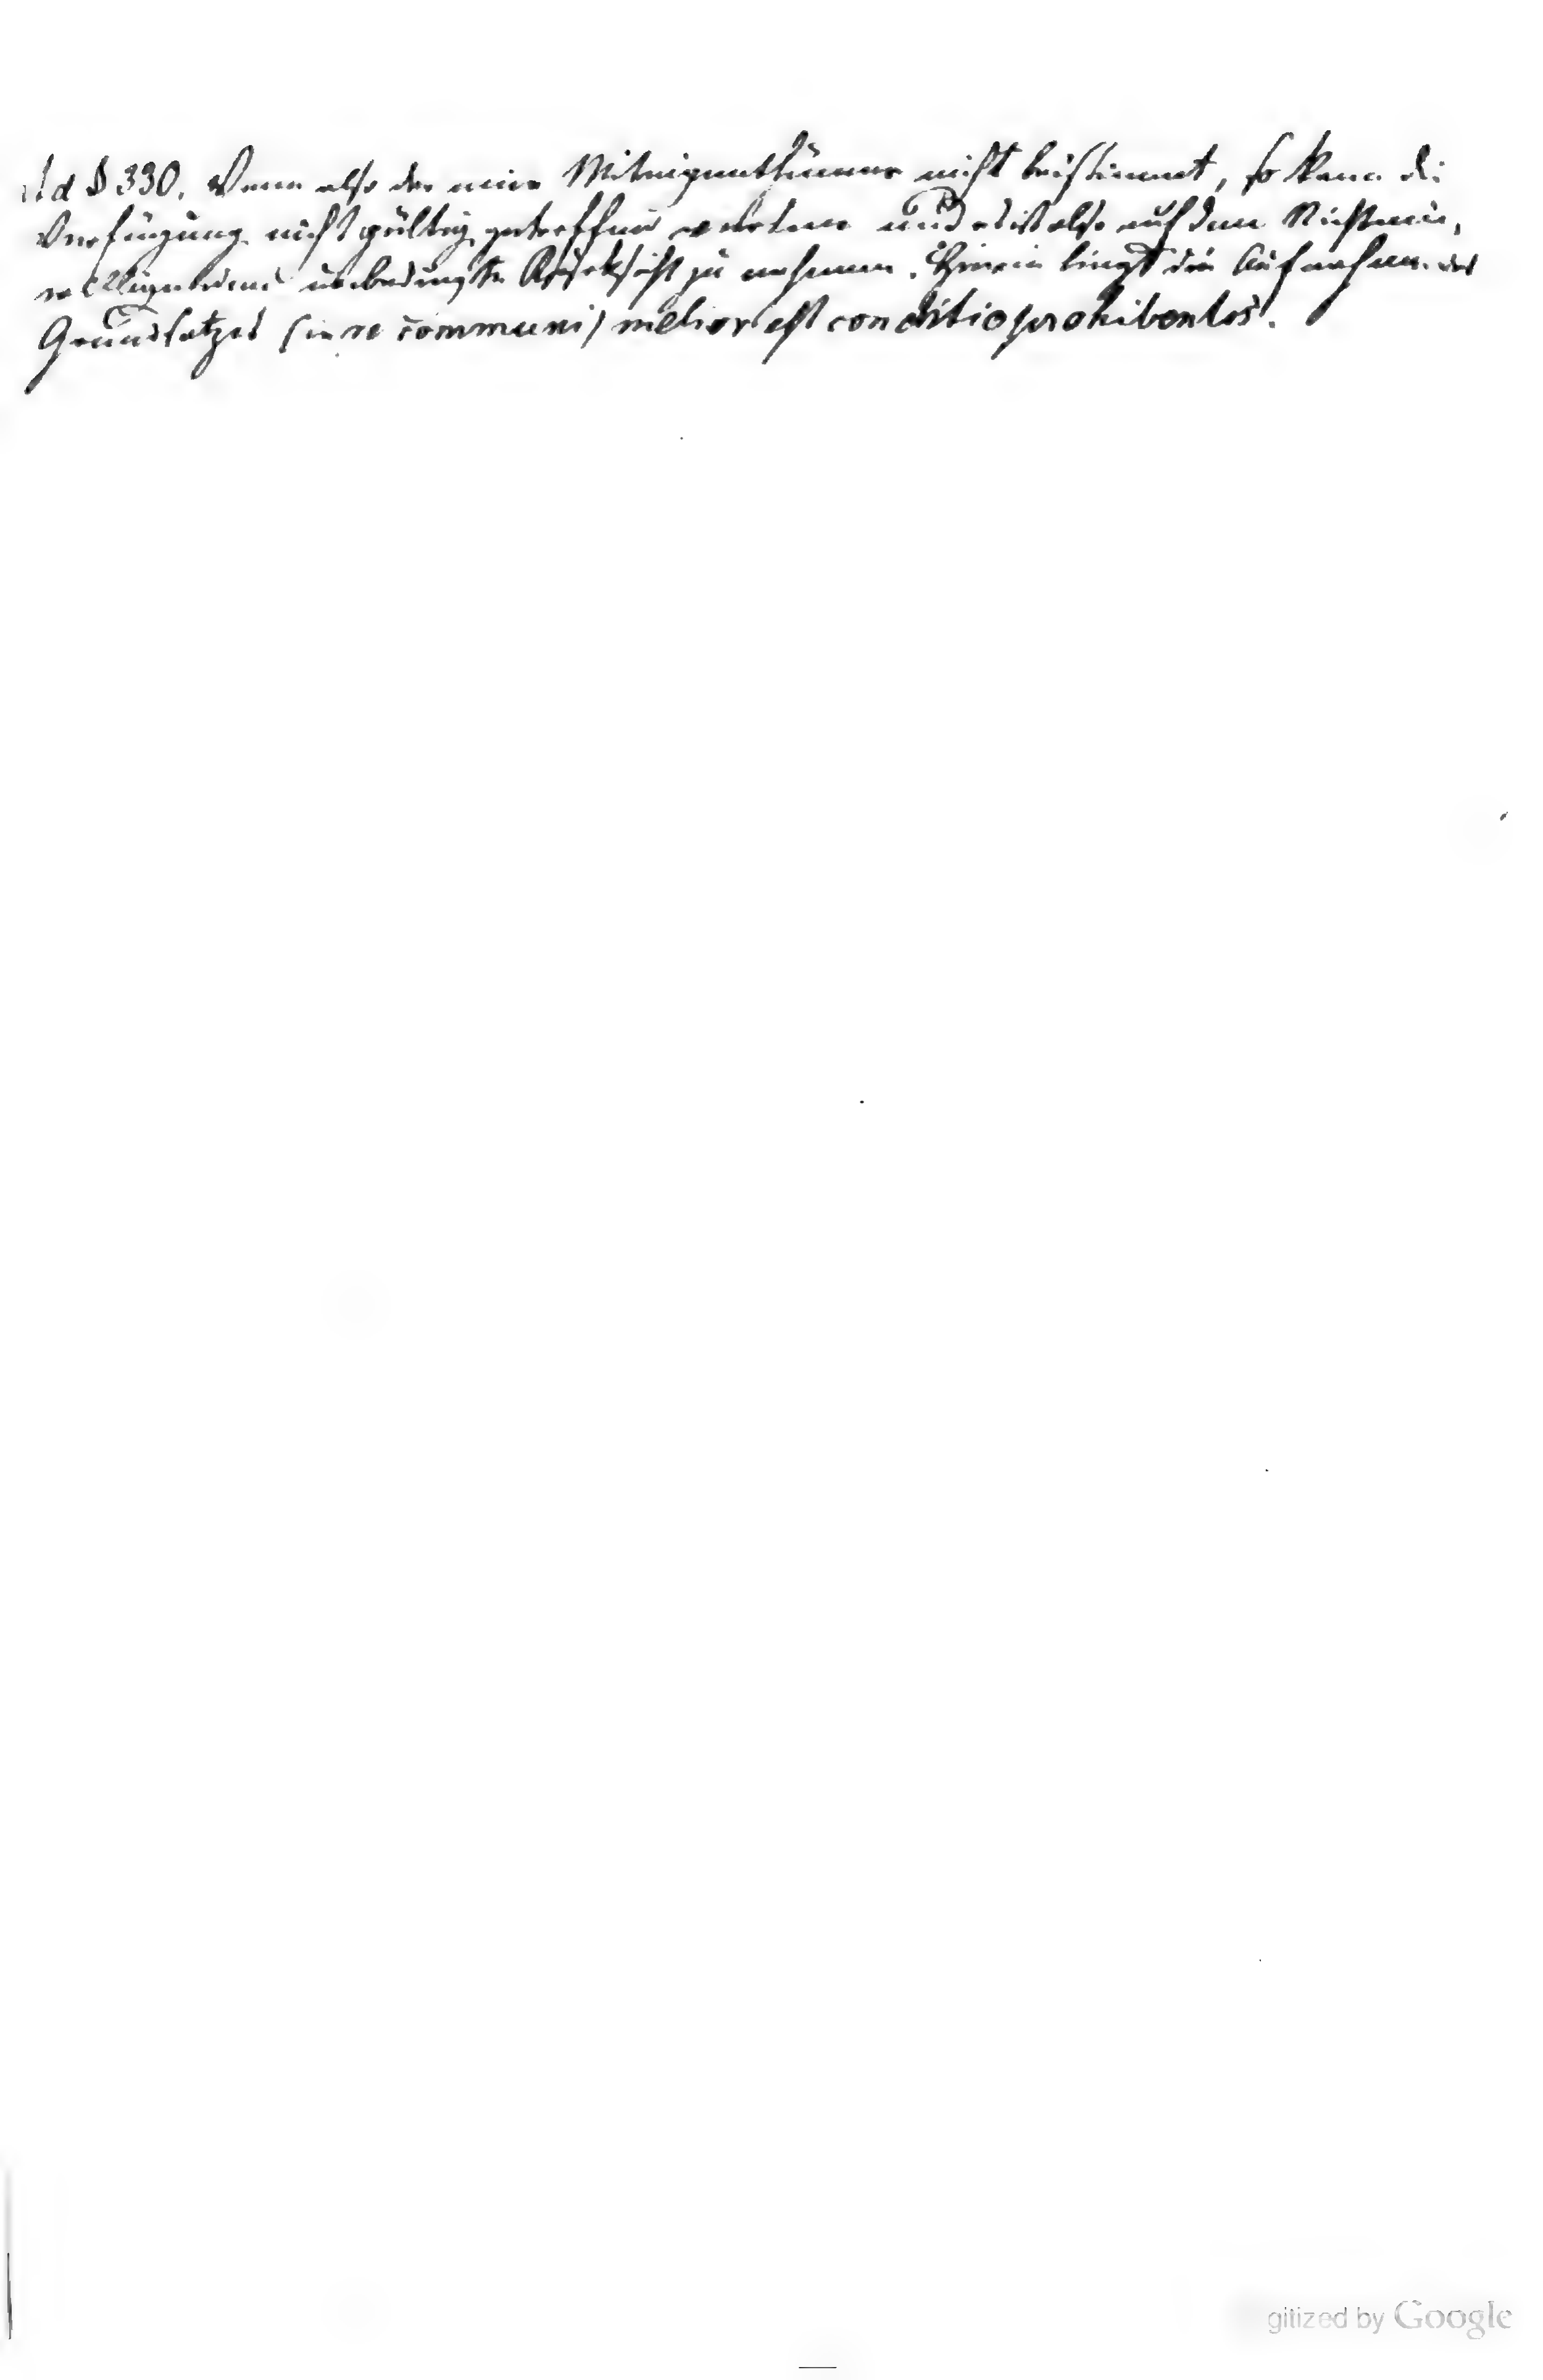 Ad § 330. Wenn also der eine Miteigenthümer nicht beistimmt, so kann die
Verfügung nicht gültig getroffen werden und es ist also auf den Nichtein-
willigenden unbedingte Rücksicht zu nehmen. Hierin liegt die Aufnahme des
Grundsatzes (in re communi) melior est conditio prohibentis.
gitized by Google